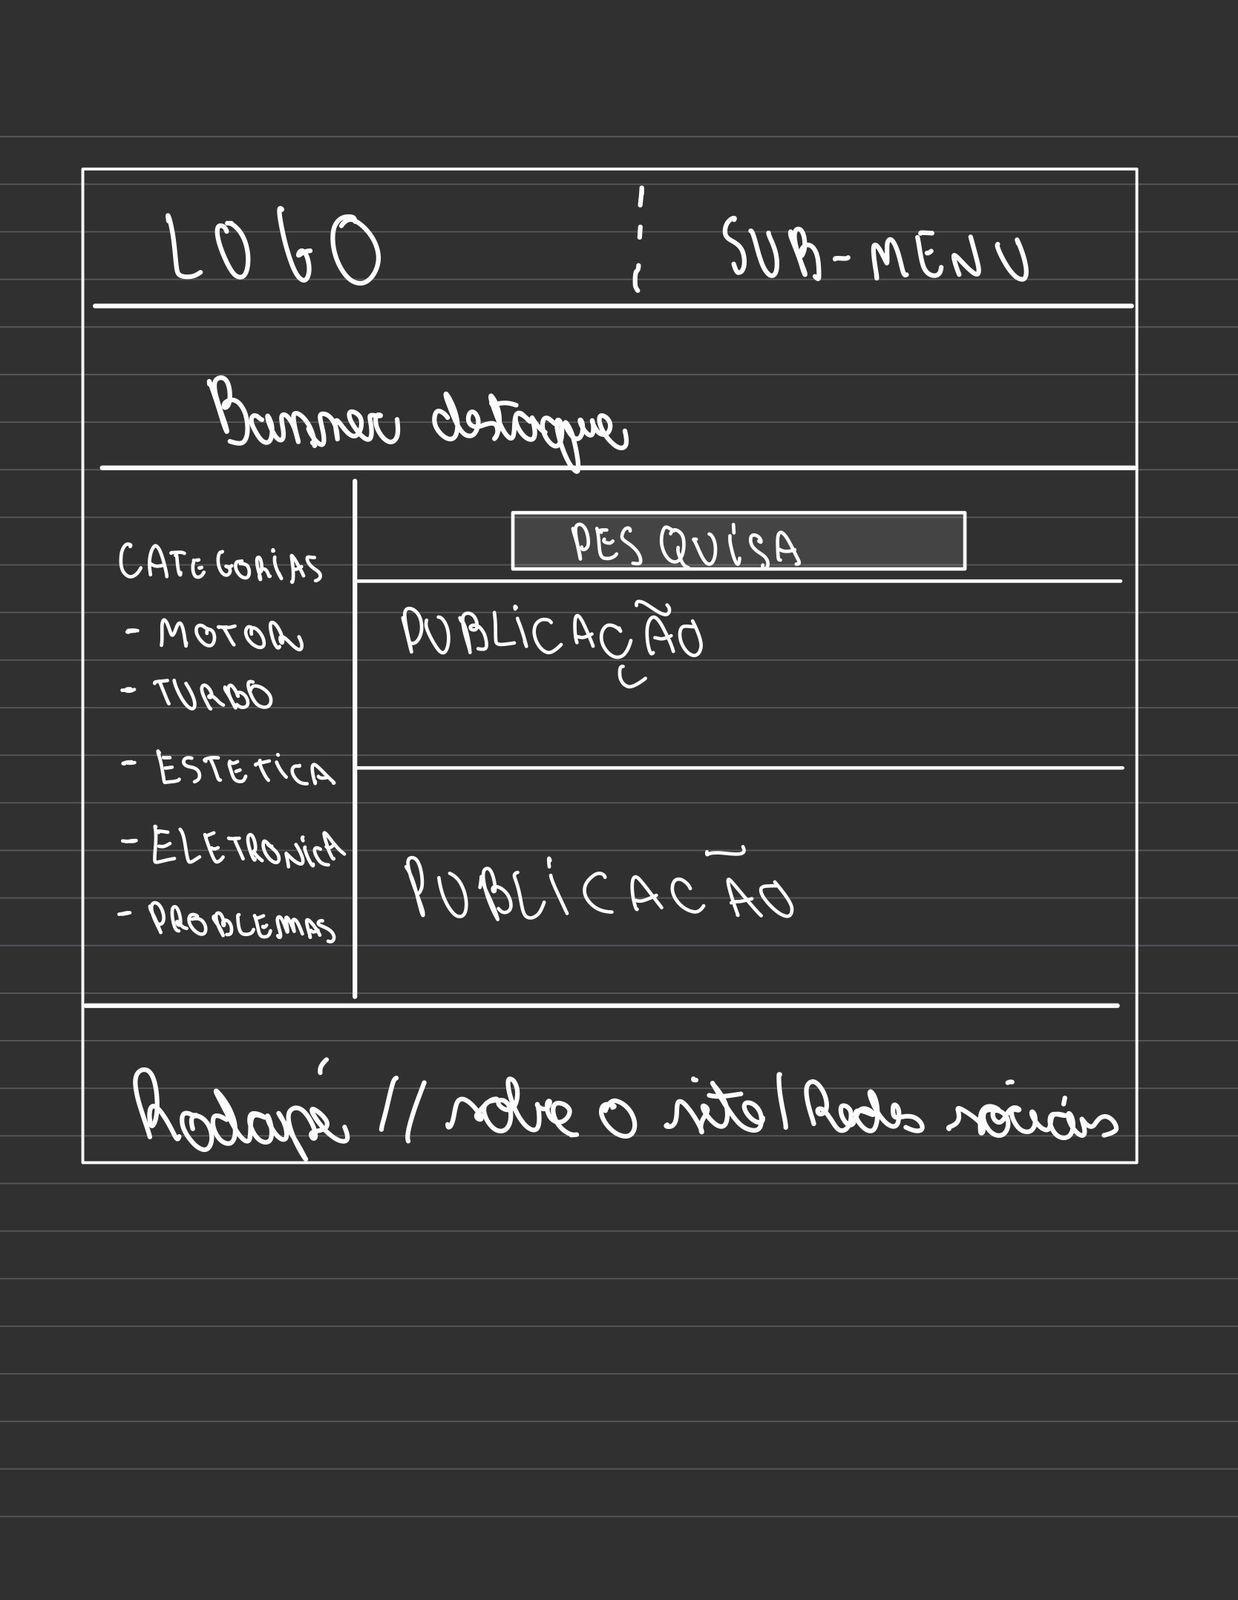 LOGO
SUB-MENU
Banner destaque
CATEGORIAS
- MOTOR
- TURBO
- ESTETICA
- ELETRONICA
- PROBLEMAS
PESQUISA
PUBLICAÇÃO
PUBLICACÃO
Rodapé // sobre o site / Redes sociáis